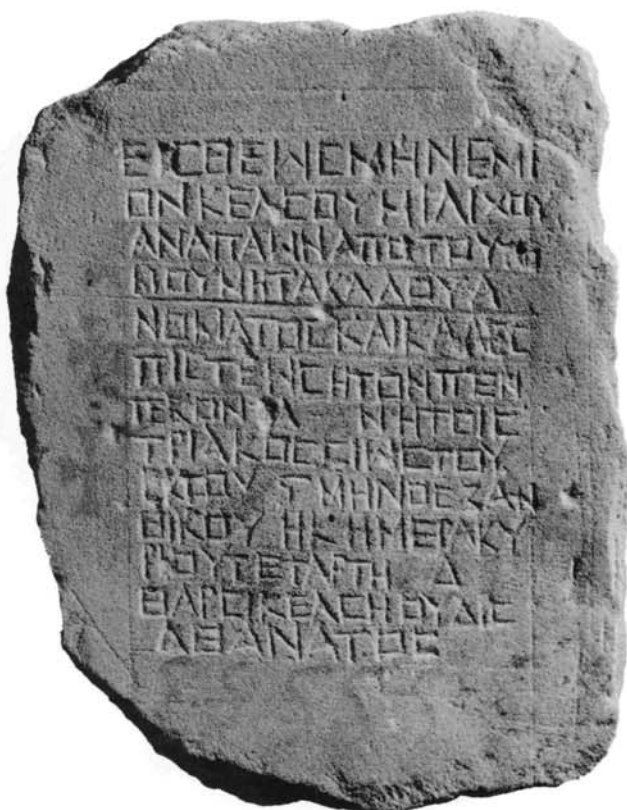 ΕΙϹΘΕWϹΜΗΝΕΜΙ
ΟΝΚΕΛϹΟΥΜΙΛΙΧΟΥ
ΑΝΑΠΑWΝΑΠΟΤΟΥ
ΒΙΟΥΜΗΤΑΚΑΛΟΥΑ
ΝΟΜΑΤΟϹΚΑΙΚΑΛΕϹ
ΠΙϹΤΕWϹΗΤΟΝΠΕΝ
ΤΕΚΟΝΤΑ ΝΗΤΟΙϹ
ΤΡΙΑΚΟϹϹΙWϹΤΟΥ
ΕΚΤΟΥ ΜΗΝΟϹΞΑΝ
ΘΙΚΟΥ ΗΚ ΗΜΕΡΑΚΥ
ΡΙΟΥΤΕΤΑΡΤΗ Δ
ΘΑΡϹΙΚΕΛϹΗΟΥΔΙϹ
ΑΘΑΝΑΤΟϹ